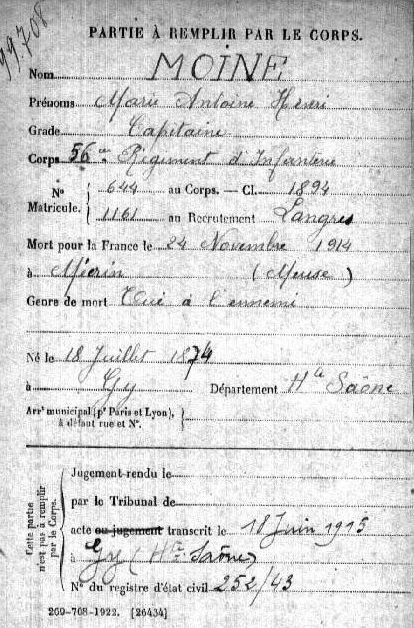 99708
PARTIE À REMPLIR PAR LE CORPS.
Nom MOINE
Prénoms Marie Antoine Henri
Grade Capitaine
Corps 56eme Régiment d'Infanterie
N° Matricule. { 644 au Corps. — Cl. 1894
1161 au Recrutement Langres
Mort pour la France le 24 Novembre 1914
à Mécrin (Meuse)
Genre de mort Tué à l'ennemi
Né le 18 Juillet 1874
à Gy Département Hte Saône
Arrt municipal (pr Paris et Lyon), à défaut rue et N°. }
Cette partie n'est pas à remplir par le Corps.
Jugement rendu le
par le Tribunal de
acte ou jugement transcrit le 18 Juin 1915
à Gy (Hte Saône)
N° du registre d'état civil 252/43
269-708-1922. [26434]